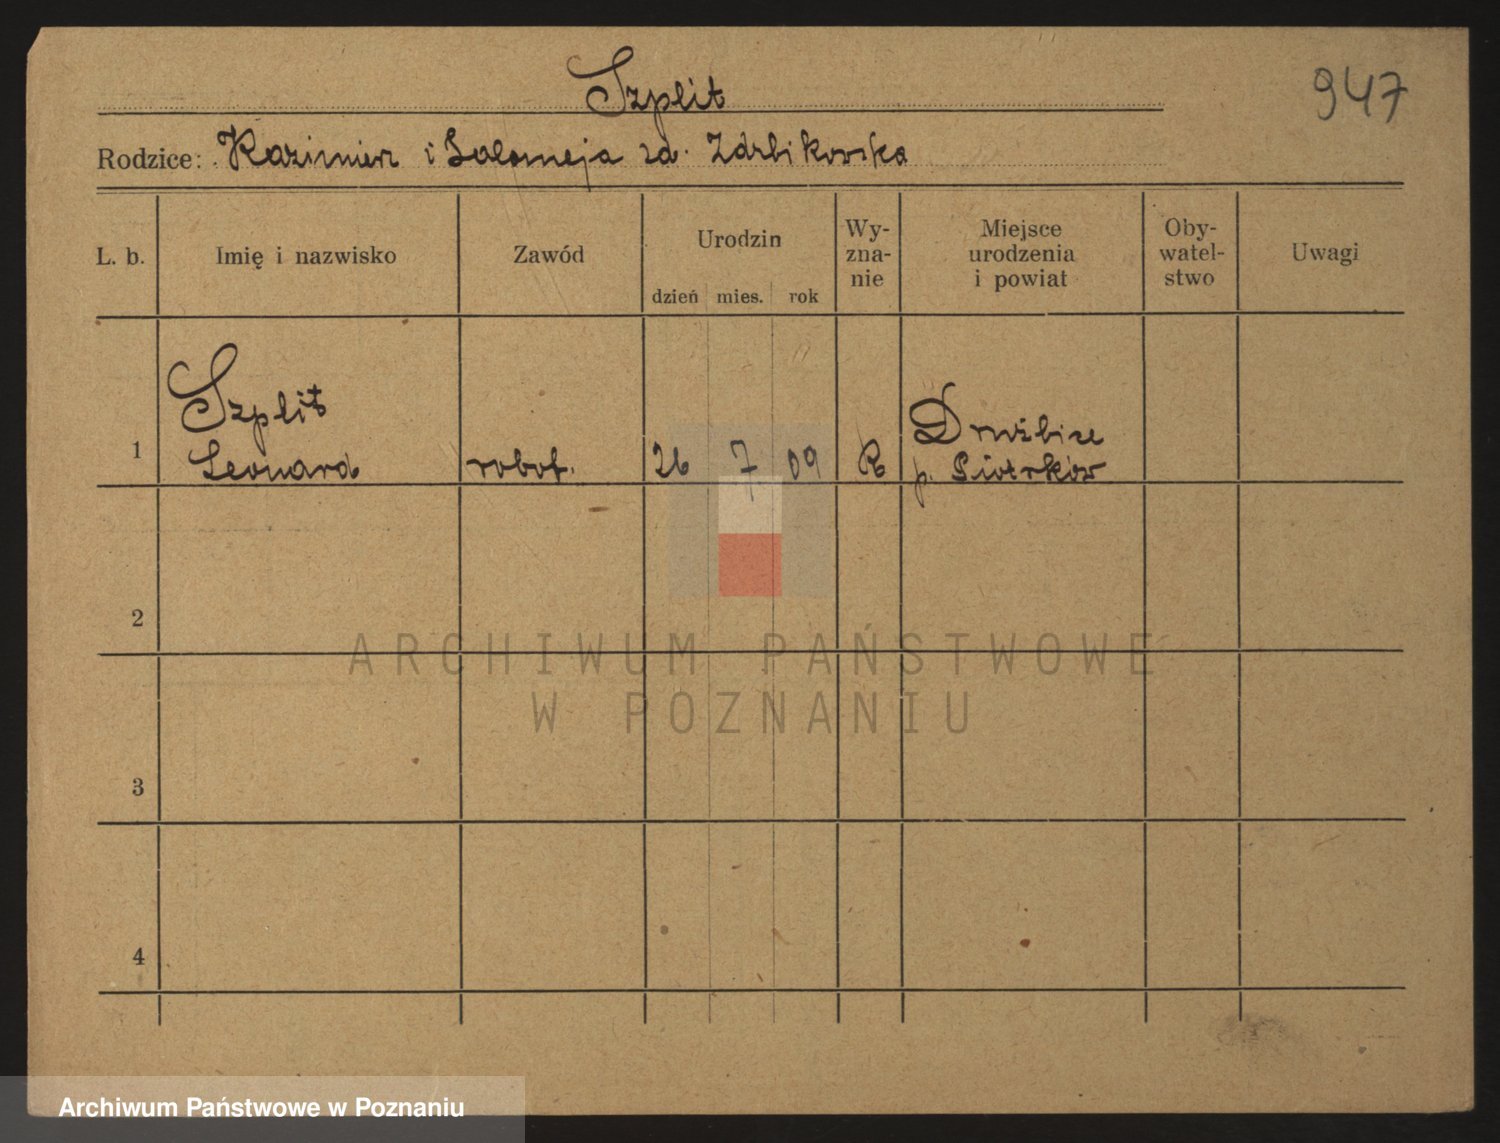 Szplit
947
Rodzice: Kazimierz i Salomeja zd. Zdrbikowska
L. b.
Imię i nazwisko
Zawód
Urodzin
dzień mies. rok
Wy-
zna-
nie
Miejsce
urodzenia
i powiat
Oby-
watel-
stwo
Uwagi
1
Szplit
Leonard
robot.
26 7 09
R
Drużbice
p. Piotrków
2
3
4
ARCHIWUM PAŃSTWOWE
W POZNANIU
Archiwum Państwowe w Poznaniu